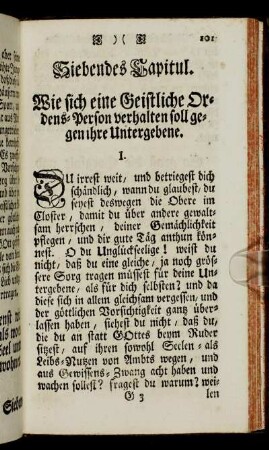 )( 101
Siebendes Capitul.
Wie sich eine Geistliche Or-
dens-Person verhalten soll ge-
gen ihre Untergebene.
I.
DU irrest weit, und betriegest dich
schändlich, wann du glaubest, du
seyest deswegen die Obere im
Closter, damit du über andere gewalt-
sam herrschen, deiner Gemächlichkeit
pflegen, und dir gute Täg anthun kön-
nest. O du Unglückselige! weist du
nicht, daß du eine gleiche, ja noch grös-
sere Sorg tragen müssest für deine Un-
tergebene, als für dich selbsten? und da
diese sich in allem gleichsam vergessen, und
der göttlichen Vorsichtigkeit gantz über-
lassen haben, siehest du nicht, daß du,
die du an statt GOttes beym Ruder
sitzest, auf ihren sowohl Seelen- als
Leibs-Nutzen von Ambts wegen, und
aus Gewissens-Zwang acht haben und
wachen sollest? fragest du warum? wei-
G 3 len